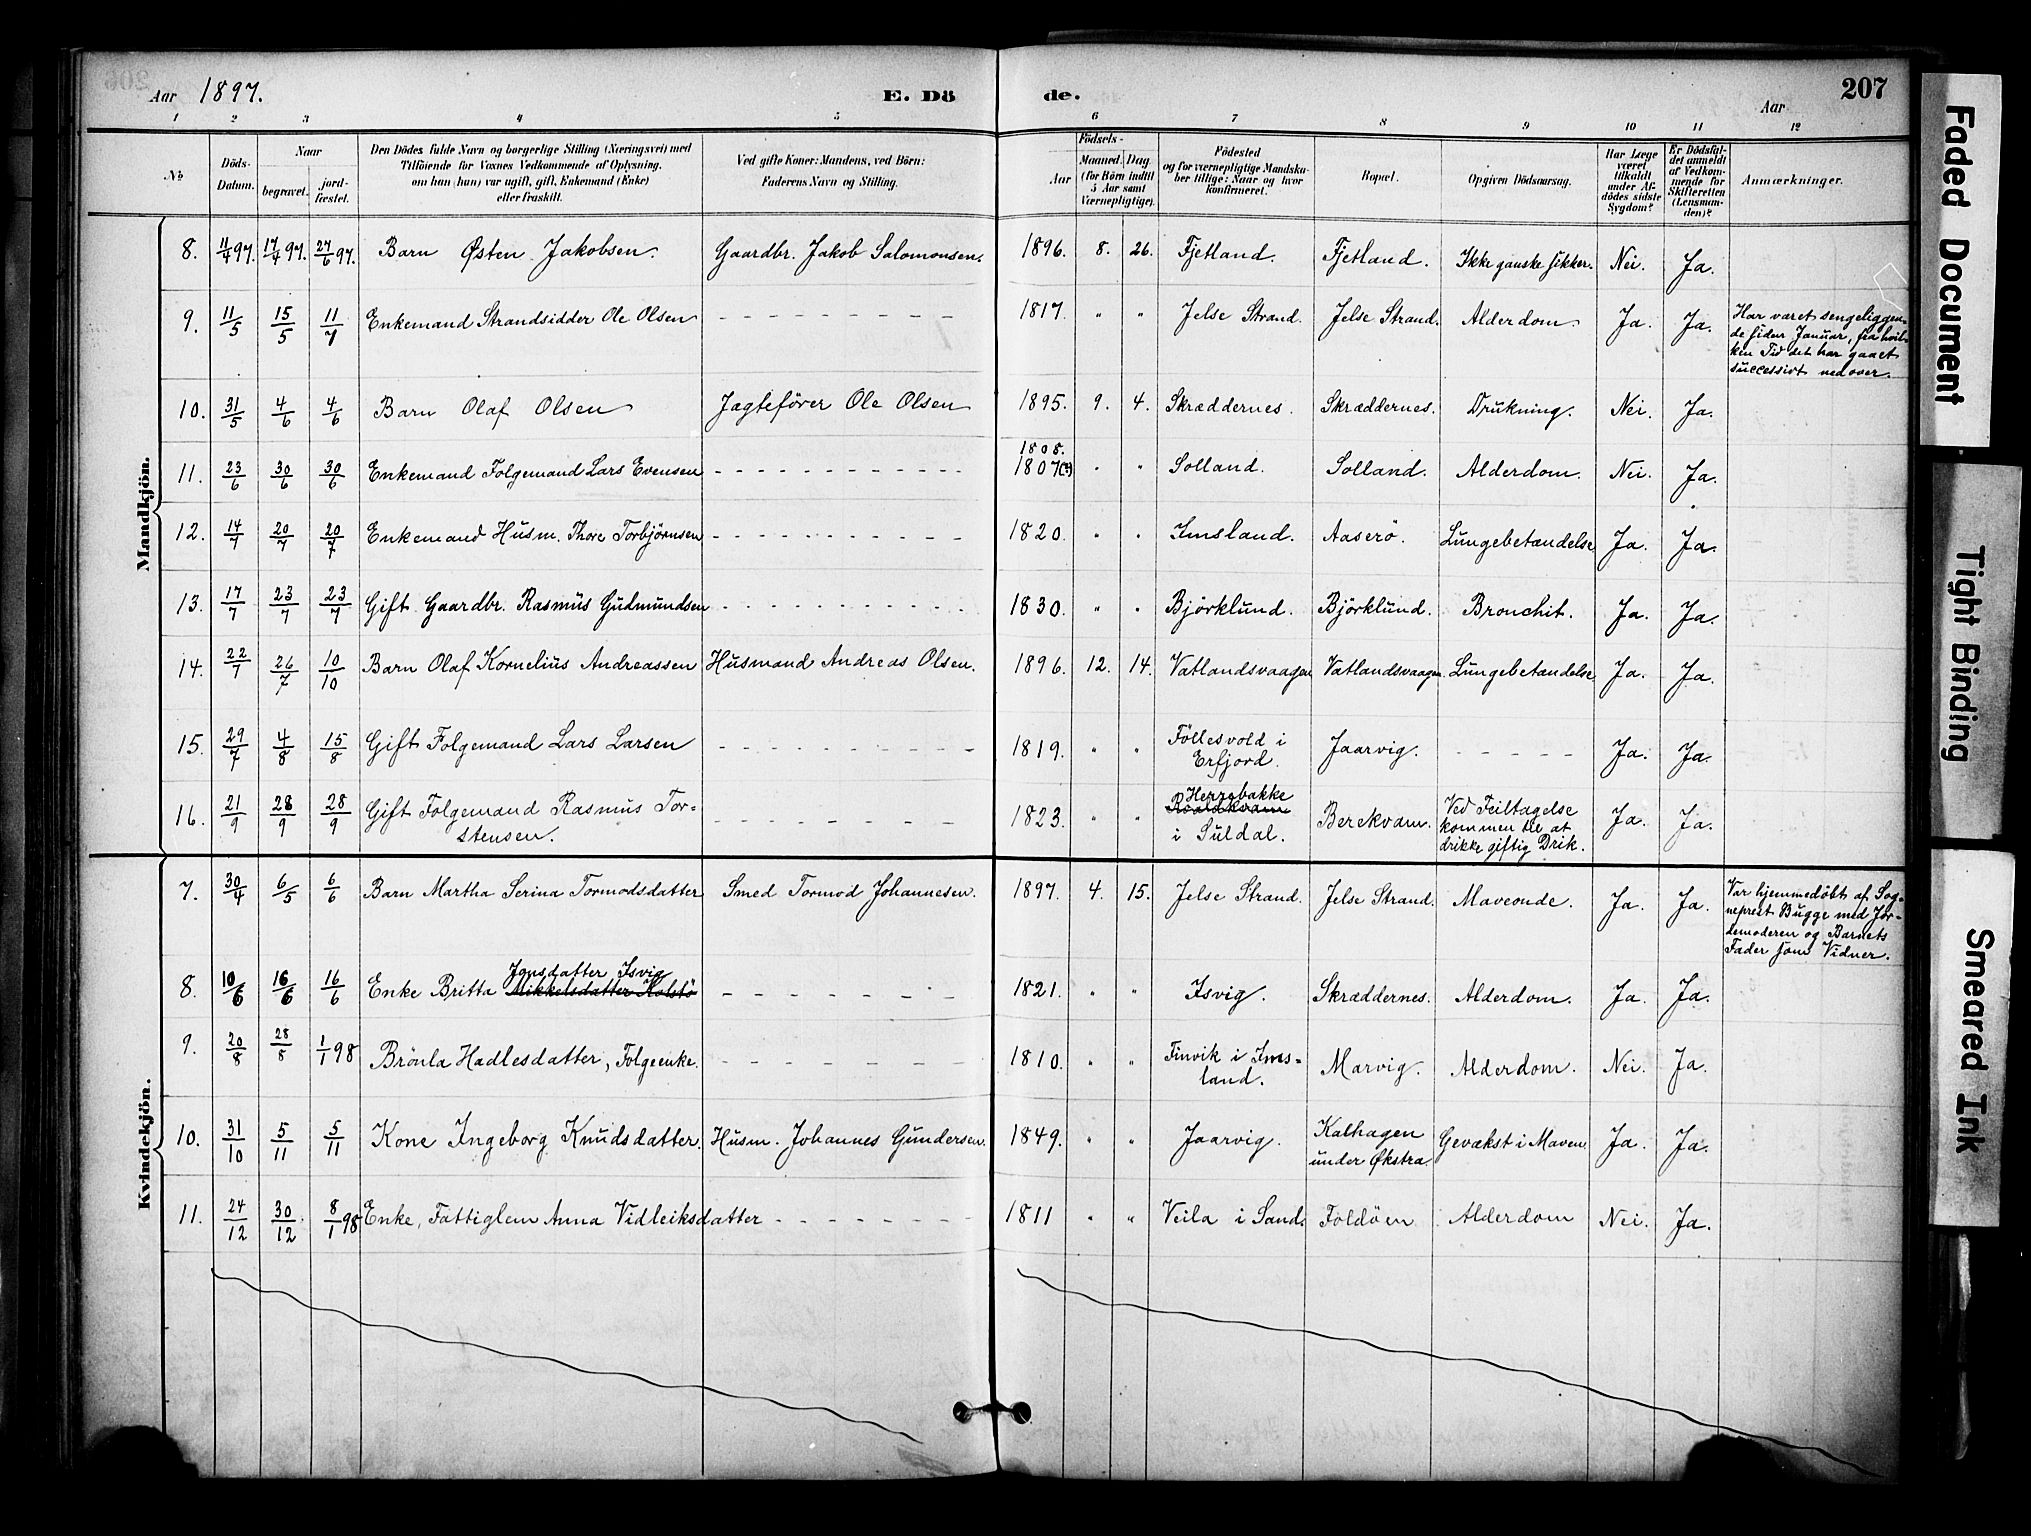 Aar 1897. E. Döde. Aar 207
1 2 3 4 5 6 7 8 9 10 11 12
No
Döds-Datum.
Naar
begravet.
jordfæstet.
Den Dödes fulde Navn og borgerlige Stilling (Næringsvei) med
Tilföiende for Voxnes Vedkommende af Oplysning,
om han (hun) var ugift, gift, Enkemand (Enke)
eller fraskilt.
Ved gifte Koner: Mandens, ved Börn:
Faderens Navn og Stilling.
Födsels-
Aar
Maaned. Dag.
(for Börn indtil
5 Aar samt
Værnepligtige).
Födested
og for værnepligtige Mandskaber tillige: Naar og hvor
konfirmeret.
Bopæl.
Opgiven Dödsaarsag.
Har Læge
været
tilkaldt
under Afdödes sidste
Sygdom?
Er Dödsfaldet anmeldt
af Vedkommende for
Skifteretten
(Lensmanden)?
Anmærkninger.
Mandkjön.
8. 11/4 97. 17/4 97. 27/6 97. Barn Østen Jakobsen. Gaardbr. Jakob Salomonsen. 1896. 8. 26. Fjetland. Fjetland. Ikke ganske sikker. Nei. Ja.
9. 11/5 15/5 11/7 Enkemand Strandsidder Ole Olsen - - - 1817. " " Jelse Strand. Jelse Strand. Alderdom. Ja. Ja. Har været sengeliggen-
de siden Januar, fra hvil-
ken Tid det har gaaet
successivt nedover.
10. 31/5 4/6 4/6 Barn Olaf Olsen Jagtefører Ole Olsen 1895. 9. 4. Skræddernes. Skræddernes. Drukning. Nei. Ja.
1808.
11. 23/6 30/6 30/6 Enkemand Folgemand Lars Evensen - - - 1807(?) " " Solland. Solland. Alderdom. Nei. Ja.
12. 14/7 20/7 20/7 Enkemand Husm. Thore Torbjørnsen - - - 1820. " " Imsland. Aaserö. Lungebetændelse Ja. Ja.
13. 17/7 23/7 23/7 Gift Gaardbr. Rasmus Gudmundsen - - - 1830. " " Björklund. Björklund. Bronchit. Ja. Ja.
14. 22/7 26/7 10/10 Barn Olaf Kornelius Andreassen Husmand Andreas Olsen. 1896. 12. 14. Vatlandsvaagen Vatlandsvaagen. Lungebetændelse Ja. Ja.
15. 29/7 4/8 15/8 Gift Folgemand Lars Larsen - - - 1819. " " Föllesvold i
Erfjord. Jaarvig. - - - Ja. Ja.
16. 21/9 28/9 28/9 Gift Folgemand Rasmus Tor-
stensen. - - - 1823. " " Herrabakke
i Suldal. Berekvam. Ved Feiltagelse
kommen til at
drikke giftig Drik. Ja. Ja.
Kvindekjön.
7. 30/4 6/5 6/6 Barn Martha Serina Tormodsdatter Smed Tormod Johannesen. 1897. 4. 15. Jelse Strand. Jelse Strand. Maveonde. Ja. Ja. Var hjemmedøbt af Sog-
neprest Bugge med Jor-
demoderen og Barnets
Fader som Vidner.
8. 10/6 16/6 16/6 Enke Britta Jonsdatter Isvig
Mikkelsdatter Holstö - - - 1821. " " Isvig. Skræddernes. Alderdom. Ja. Ja.
9. 20/8 28/8 1/1 98 Brönla Hadlesdatter, Folgeenke. - - - 1810. " " Tinvik i Ims-
land. Marvig. Alderdom. Nei. Ja.
10. 31/10 5/11 5/11 Kone Ingeborg Knudsdatter. Husm. Johannes Gundersen. 1849. " " Jaarvig. Kalhagen
under Økstra. Gevækst i Maven. Ja. Ja.
11. 24/12 30/12 8/1 98 Enke, Fattiglem Anna Vidleiksdatter - - - 1811 " " Veila i Sand. Foldöen Alderdom Nei. Ja.
Faded Document
Tight Binding
Smeared Ink